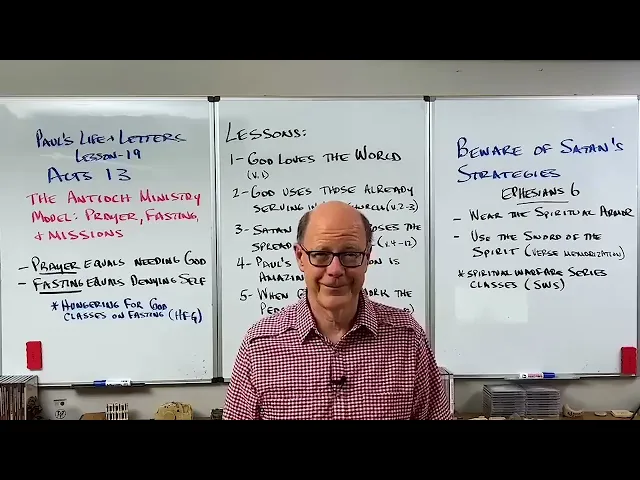 Paul's Life + Letters
Lesson-19
Acts 13
The Antioch Ministry
Model: Prayer, Fasting,
+ Missions
- Prayer equals needing God
- Fasting equals denying self
* Hungering for God
classes on fasting (HFG)
Lessons:
1- God loves the world
(v.1)
2- God uses those already
serving in (v.2-3)
3- Satan the
spread (v.4-12)
4- Paul's is
Amazin
5- When the
Beware of Satan's
Strategies
Ephesians 6
- Wear the Spiritual Armor
- Use the Sword of the
Spirit (verse memorization)
* Spiritual Warfare Series
classes (SWS)